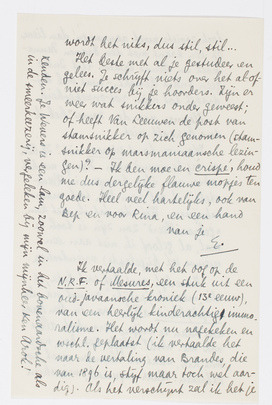 wordt het niks, dus stil, stil...
Het beste met al je gestudeer en
gelees. Je schrijft niets over het al of
niet succes bij je hoorders. Zijn er
meer wat snikkers onder geweest;
of heeft Van Leeuwen de post van
stamsnikker op zich genomen (stam-
snikker op marsmaniaansche lezin-
gen)? — Ik ben moe en crispé, houd
me dus dergelijke flauwe mopjes ten
goede. Heel veel hartelijks, ook van
Bep en voor Rina, en een hand
van je
E.
Ik vertaalde, met het oog op de
N.R.F. of Mesures, een stuk uit een
oud-Javaansche kroniek (13e eeuw),
van een heerlijk kinderachtige immo-
ralisme. Het wordt nu nagekeken en
wschl. geplaatst (ik vertaalde het
naar de vertaling van Brandes die
van 1896 is, stijf maar toch wel aar-
dig). Als het verschijnt zal ik het je
zenden. Je wevers is een lam, zoowel in het bonewandsche als
in de smeerkeezerij, vergeleken bij mijn mijnheer Ken Arok!